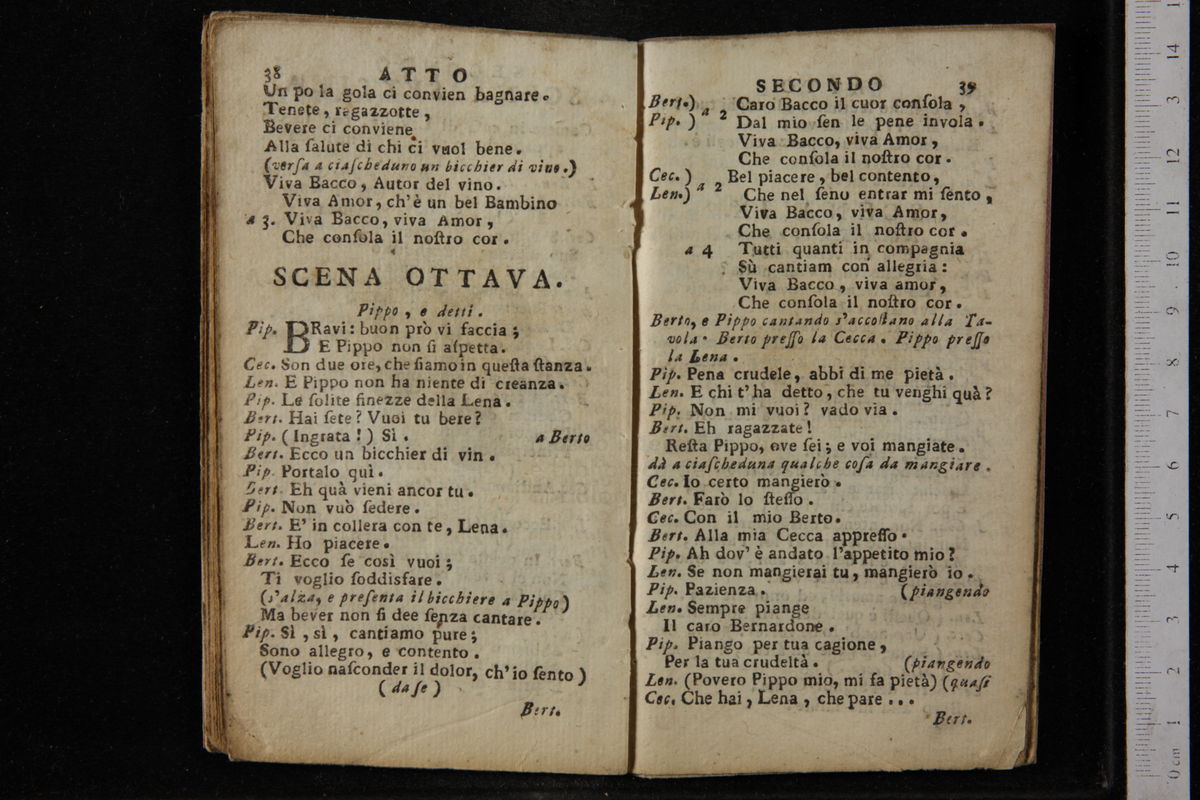 38 ATTO
Un po la gola ci convien bagnare.
Tenete, ragazzotte,
Bevere ci conviene
Alla ſalute di chi ci vuol bene.
(verſa a ciaſcheduno un bicchier di vino.)
Viva Bacco, Autor del vino.
Viva Amor, ch'è un bel Bambino
a 3. Viva Bacco, viva Amor,
Che conſola il noſtro cor.
SCENA OTTAVA.
Pippo, e detti.
Pip. BRavi: buon prò vi faccia;
E Pippo non ſi aſpetta.
Cec. Son due ore, che ſiamo in queſta ſtanza.
Len. E Pippo non ha niente di creanza.
Pip. Le ſolite finezze della Lena.
Bert. Hai ſete? Vuoi tu bere?
Pip. (Ingrata!) Sì. a Berto
Bert. Ecco un bicchier di vin.
Pip. Portalo quì.
Bert. Eh quà vieni ancor tu.
Pip. Non vuò ſedere.
Bert. E' in collera con te, Lena.
Len. Ho piacere.
Bert. Ecco ſe così vuoi;
Ti voglio ſoddisfare.
(s'alza, e preſenta il bicchiere a Pippo)
Ma bever non ſi dee ſenza cantare.
Pip. Sì, sì, cantiamo pure;
Sono allegro, e contento.
(Voglio naſconder il dolor, ch'io ſento)
(da ſe)
Bert.
SECONDO 39
Bert.) Caro Bacco il cuor conſola,
Pip. ) a 2 Dal mio ſen le pene invola.
Viva Bacco, viva Amor,
Che conſola il noſtro cor.
Cec. ) Bel piacere, bel contento,
Len.) a 2 Che nel ſeno entrar mi ſento,
Viva Bacco, viva Amor,
Che conſola il noſtro cor.
a 4 Tutti quanti in compagnia
Sù cantiam con allegria:
Viva Bacco, viva amor,
Che conſola il noſtro cor.
Berto, e Pippo cantando s'accoſtano alla Ta-
vola. Berto preſſo la Cecca. Pippo preſſo
la Lena.
Pip. Pena crudele, abbi di me pietà.
Len. E chi t'ha detto, che tu venghi quà?
Pip. Non mi vuoi? vado via.
Bert. Eh ragazzate!
Reſta Pippo, ove ſei; e voi mangiate.
dà a ciaſcheduna qualche coſa da mangiare.
Cec. Io certo mangierò.
Bert. Farò lo ſteſſo.
Cec. Con il mio Berto.
Bert. Alla mia Cecca appreſſo.
Pip. Ah dov' è andato l'appetito mio?
Len. Se non mangierai tu, mangierò io.
Pip. Pazienza. (piangendo
Len. Sempre piange
Il caro Bernardone.
Pip. Piango per tua cagione,
Per la tua crudeltà. (piangendo
Len. (Povero Pippo mio, mi fa pietà) (quaſi
Cec. Che hai, Lena, che pare...
Bert.
0 cm 1 2 3 4 5 6 7 8 9 10 11 12 3 14